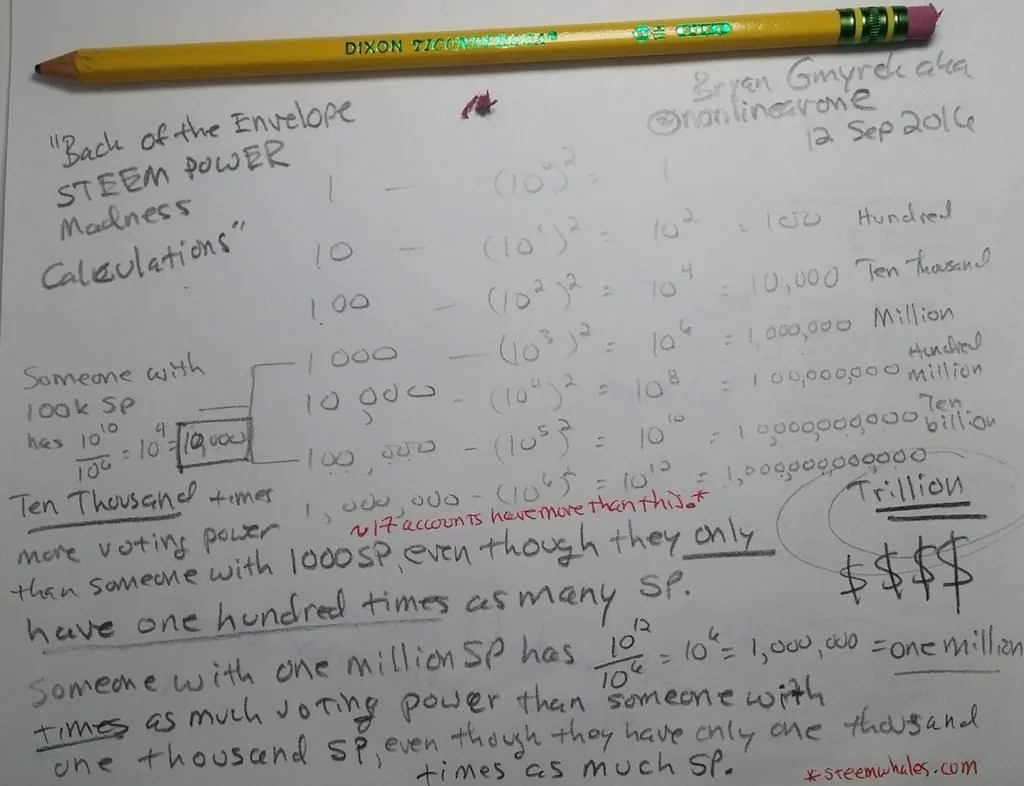 DIXON TICONDEROGA
Bryan Gmyrek aka
@nonlinearone
12 Sep 2016
"Back of the Envelope
STEEM POWER
Madness
Calculations"
1 — (10⁰)² = 1
10 — (10¹)² = 10² = 100 Hundred
100 — (10²)² = 10⁴ = 10,000 Ten Thousand
1000 — (10³)² = 10⁶ = 1,000,000 Million
10,000 - (10⁴)² = 10⁸ = 100,000,000 Hundred Million
100,000 - (10⁵)² = 10¹⁰ = 10,000,000,000 Ten billion
1,000,000 - (10⁶)² = 10¹² = 1,000,000,000,000
Trillion
$$$$
~17 accounts have more than this.*
Someone with
100k SP
has 10¹⁰/10⁶ = 10⁴ = 10,000
Ten Thousand times
more voting power
than someone with 1000SP, even though they only
have one hundred times as many SP.
Someone with one million SP has 10¹²/10⁶ = 10⁶ = 1,000,000 = one million
times as much voting power than someone with
one thousand SP, even though they have only one thousand
times as much SP.
*steemwhales.com